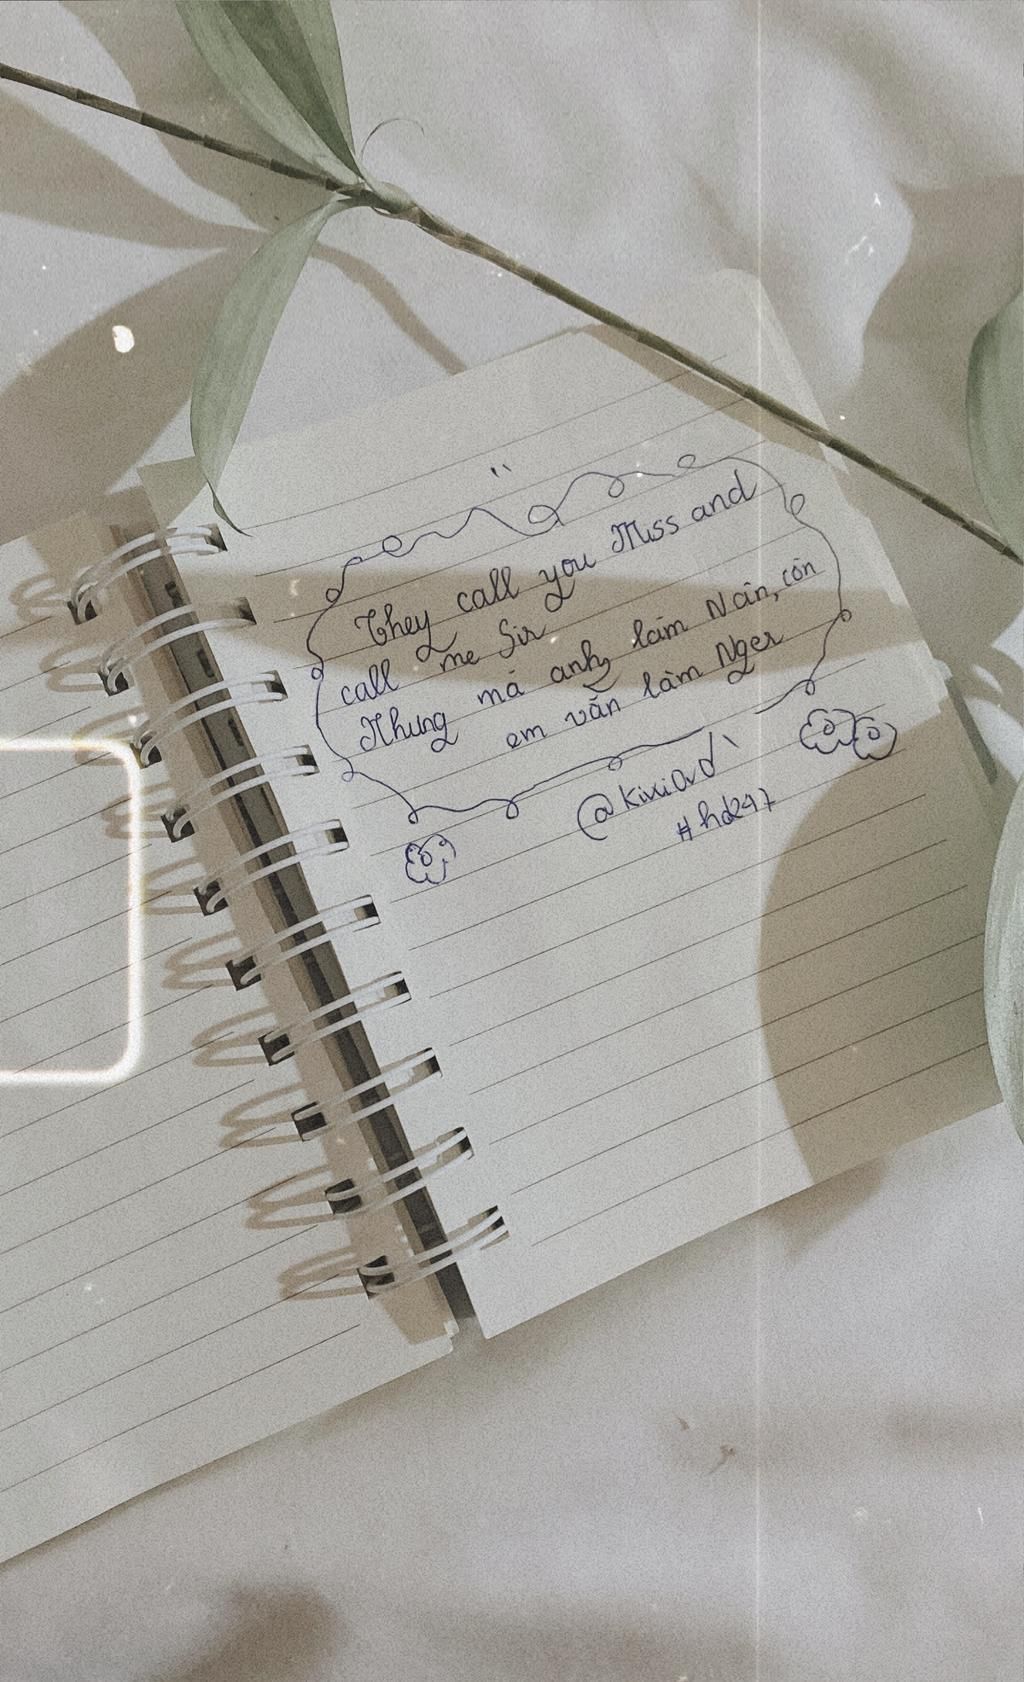 They call you Miss and
call me Sir
Nhưng mà anh làm Nân, còn
em vẫn làm Nger
@KixiOrd
#hd247